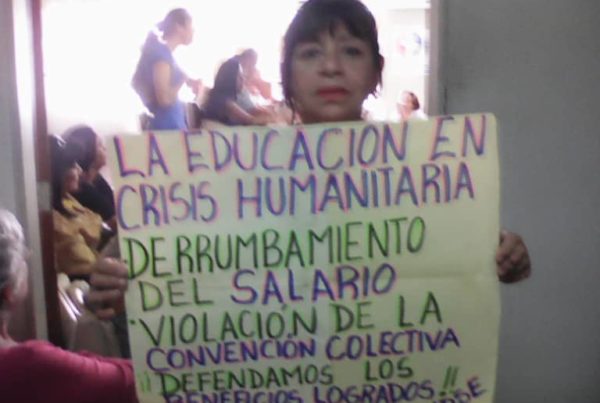 LA EDUCACION EN
CRISIS HUMANITARIA
DERRUMBAMIENTO
DEL SALARIO
·VIOLACIÓN DE LA
CONVENCIÓN COLECTIVA
¡¡DEFENDAMOS LOS
BENEFICIOS LOGRADOS!!